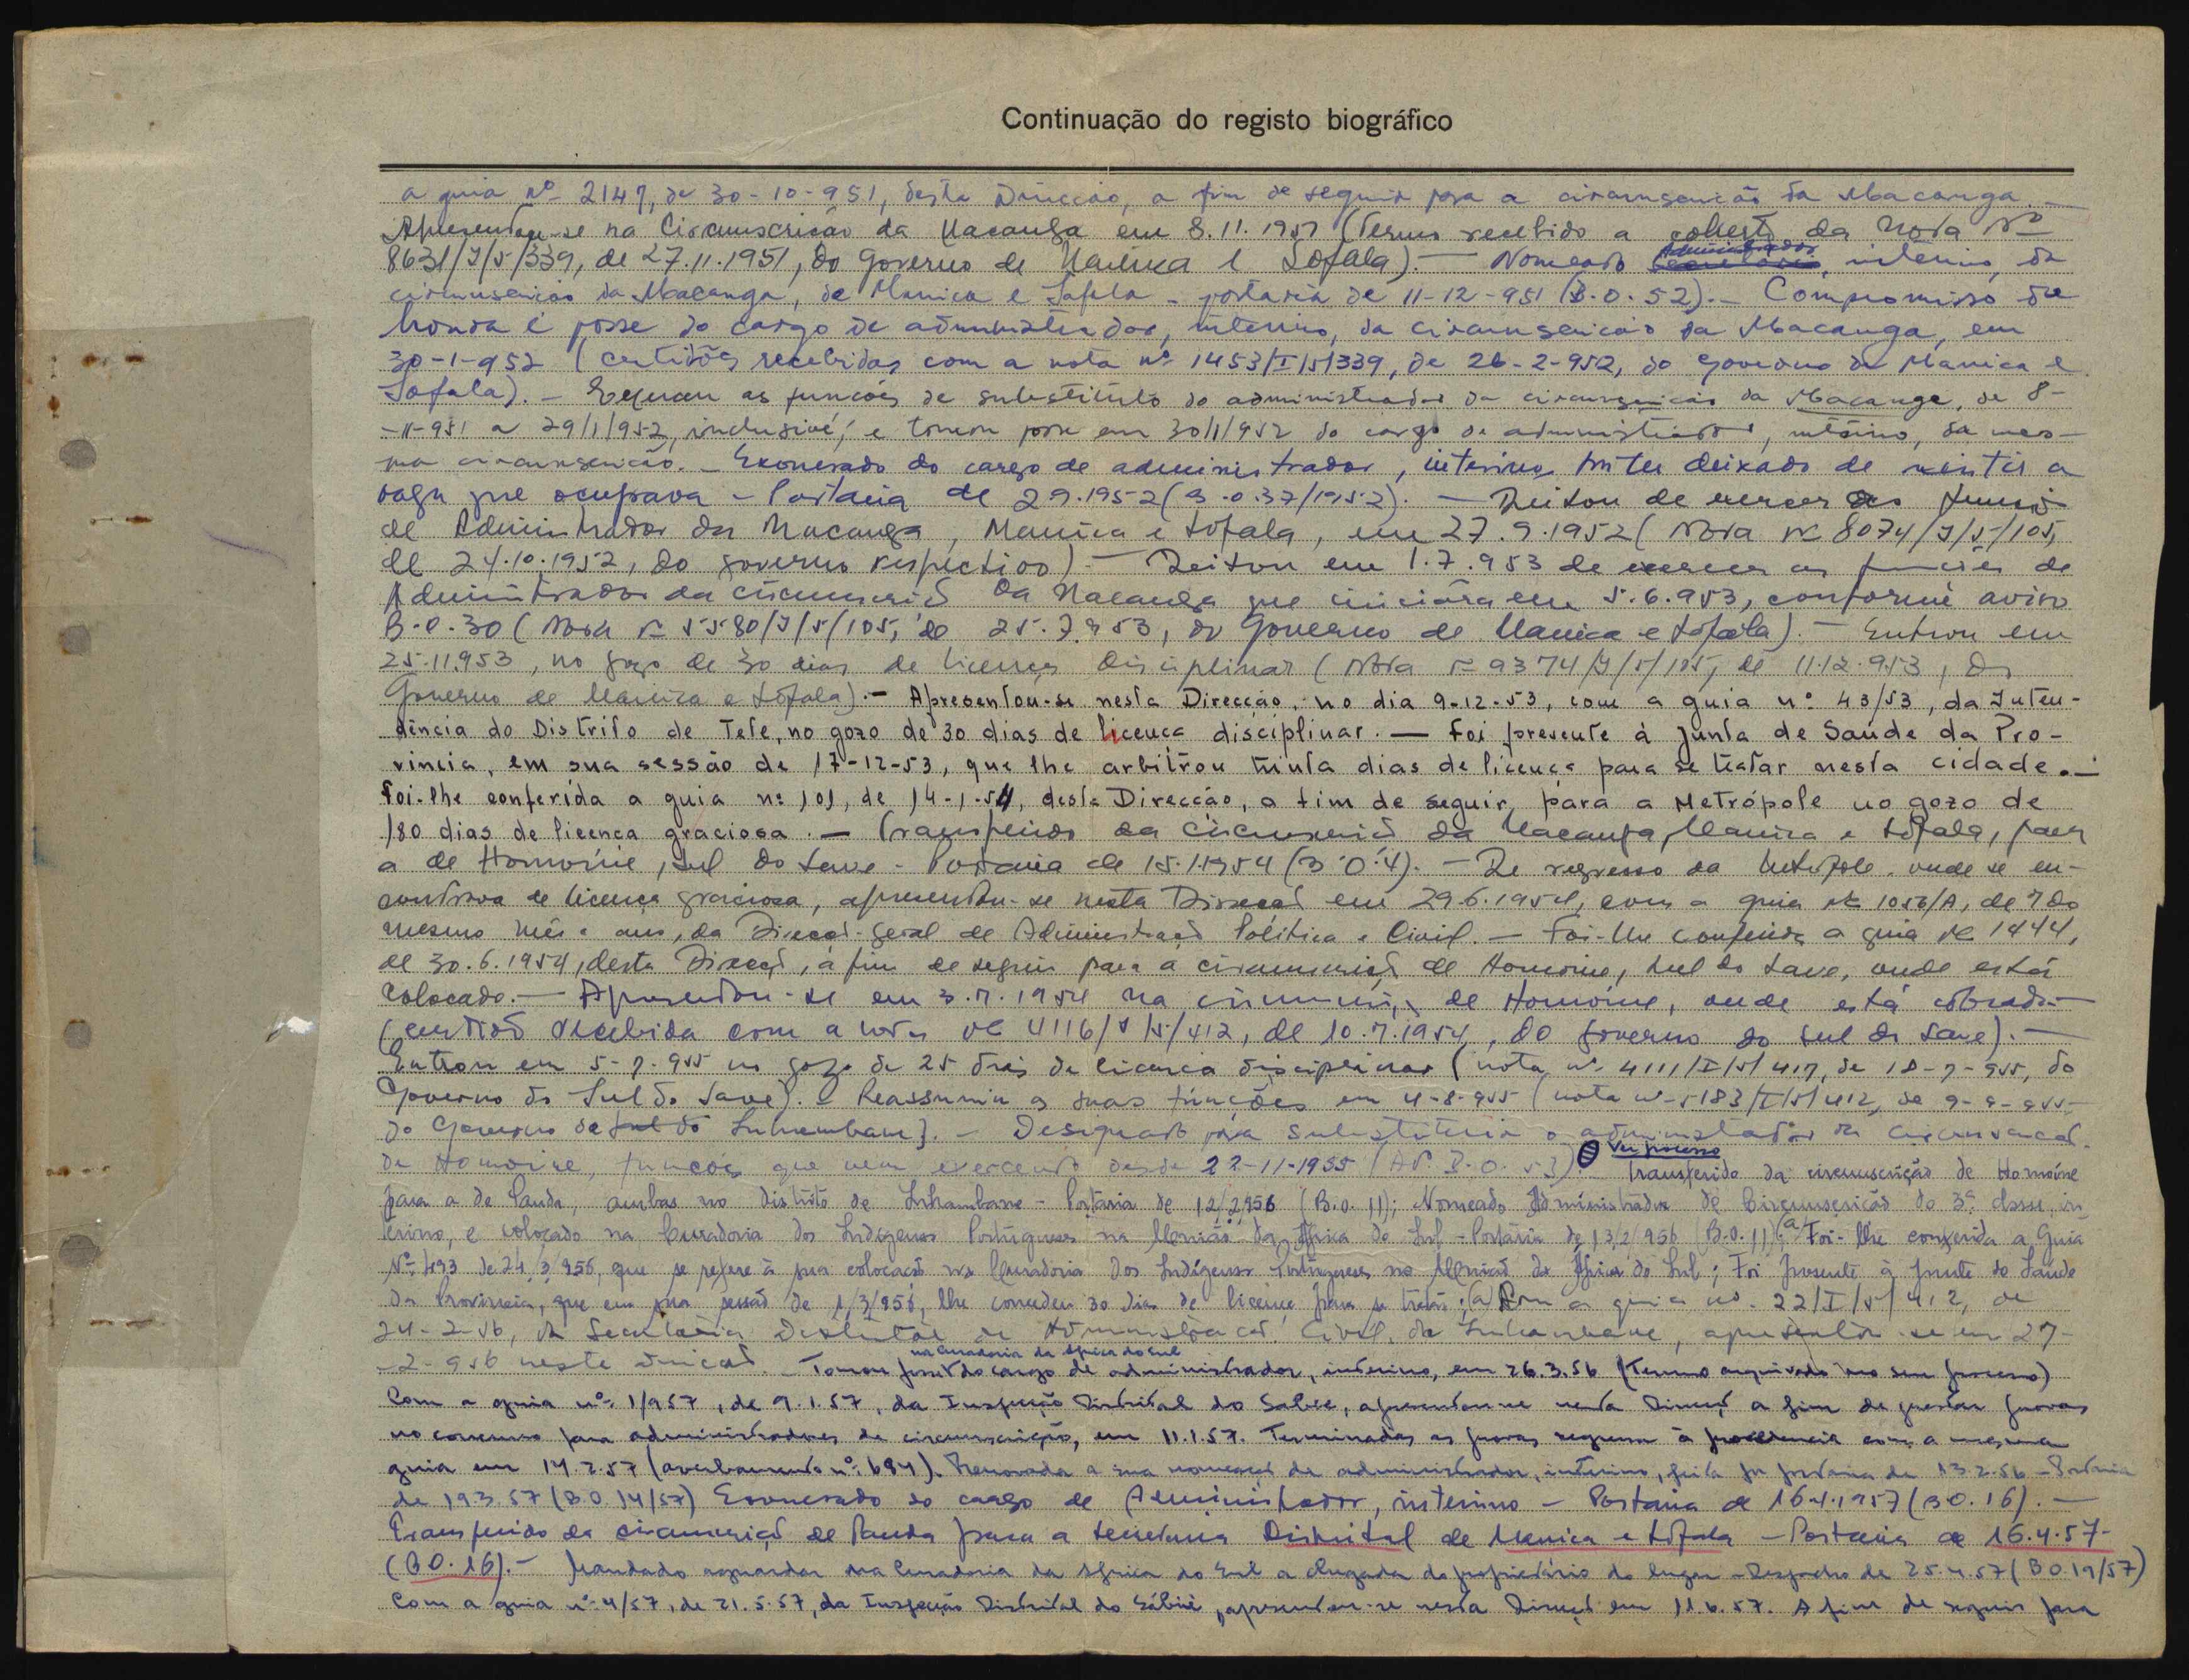 Continuação do registo biográfico
a guia nº 2147, de 30-10-951, desta Direcção, a fim de seguir para a circunscrição da Macanga.—
Apresentou-se na Circunscrição da Macanga em 8.11.1951 (Termo recebido a coberto da Nota Nº
8631/I/5/339, de 27.11.1951, do Governo de Manica e Sofala).— Nomeado Administrador, interino, da
circunscrição da Macanga, de Manica e Sofala - portaria de 11-12-951 (B.O. 52).— Compromisso de
honra e posse do cargo de administrador, interino, da circunscrição da Macanga, em
30-1-952 (certidões recebidas com a nota nº 1453/I/5/339, de 26-2-952, do Governo de Manica e
Sofala).— Exerceu as funções de substituto do administrador da circunscrição da Macanga, de 8-
-11-951 a 29/1/952, inclusivé, e tomou posse em 30/1/952 do cargo de administrador, interino, da mes-
ma circunscrição.— Exonerado do cargo de administrador, interino, por ter deixado de existir a
vaga que ocupava - Portaria de 2.9.1952 (B.O.37/1952).— Deixou de exercer as funções
de Administrador da Macanga, Manica e Sofala, em 27.9.1952 (Nota Nº 8074/I/5/105,
de 24.10.1952, do governo respectivo)— Deixou em 1.7.953 de exercer as funções de
Administrador da circunscrição da Macanga que iniciára em 5.6.953, conforme aviso
B.O.30 (Nota nº 5580/I/5/105, de 25.7.953, do Governo de Manica e Sofala).— Entrou em
25.11.953, no gozo de 30 dias de licença disciplinar (Nota nº 9374/I/5/105, de 11.12.953, do
Governo de Manica e Sofala).— Apresentou-se nesta Direcção, no dia 9-12-53, com a guia nº 43/53, da Inten-
dência do Distrito de Tete, no gozo de 30 dias de licença disciplinar.— Foi presente à Junta de Saúde da Pro-
víncia, em sua sessão de 17-12-53, que lhe arbitrou trinta dias de licença para se tratar nesta cidade.—
Foi-lhe conferida a guia nº 101, de 14-1-54, desta Direcção, a fim de seguir para a Metrópole no gozo de
180 dias de licença graciosa.— Transferido da circunscrição da Macanga, Manica e Sofala, para
a de Homoíne, Sul do Save - Portaria de 15.1.1954 (B.O.4).— De regresso da Metrópole, onde se en-
contrava de licença graciosa, apresentou-se nesta Direcção em 29.6.1954, com a guia nº 1056/A, de 7 do
mesmo mês e ano, da Direcção-Geral de Administração Política e Civil.— Foi-lhe conferida a guia nº 1444,
de 30.6.1954, desta Direcção, a fim de seguir para a circunscrição de Homoíne, Sul do Save, onde está
colocado.— Apresentou-se em 3.7.1954 na circunscrição de Homoíne, onde está colocado
(certidão recebida com a nota nº 4116/I/5/412, de 10.7.1954, do Governo do Sul do Save).—
Entrou em 5-7-955 no gozo de 25 dias de licença disciplinar (nota nº 4111/I/5/417, de 18-7-955, do
Governo do Sul do Save).— Reassumiu as suas funções em 4-8-955 (nota nº 5183/I/5/412, de 9-8-955-
do Governo de Inhambane).— Designado para substituir o administrador da circunscrição
de Homoíne, funções que vem exercendo desde 22-11-1955 (AV. B.O. 53). Ver processo Transferido da circunscrição de Homoíne
para a de Panda, ambas no distrito de Inhambane - Portaria de 12/2/956 (B.O. 11); Nomeado Administrador de Circunscrição de 3ª classe, in-
terino, e colocado na Curadoria dos Indígenas Portugueses na União da África do Sul - Portaria de 13/2/956 (B.O. 11) (a) Foi-lhe conferida a Guia
Nº 493 de 24/3/956, que se refere à sua colocação na Curadoria dos Indígenas Portugueses na União da África do Sul; Foi presente à Junta de Saúde
da Província, que em sua sessão de 1/3/956, lhe concedeu 30 dias de licença para se tratar; (a) Com a guia nº 22/I/5/412, de
24-2-56, da Secretaria Distrital de Administração Civil de Inhambane, apresentou-se em 27-
-2-956 nesta Direcção.— Tomou posse na Curadoria da Africa do Sul do cargo de administrador, interino, em 26.3.56 (Termo arquivado no seu processo)
Com a guia nº 1/957, de 9.1.57, da Inspecção Distrital do Sabie, apresentou-se nesta Direcção a fim de prestar provas
no concurso para administradores de circunscrição, em 11.1.57. Terminadas as provas regressou à procedencia com a mesma
guia em 14.2.57 (averbamento nº 684). Renovada a sua nomeação de administrador, interino, feita por portaria de 13.2.56 - Portaria
de 19.3.57 (B.O. 14/57) Exonerado do cargo de Administrador, interino - Portaria de 16.4.1957 (B.O. 16).—
Transferido da circunscrição de Panda para a Secretaria Distrital de Manica e Sofala - Portaria de 16.4.57-
(B.O. 16).— Mandado aguardar na Curadoria da Africa do Sul a chegada do proprietário do lugar - Despacho de 25.4.57 (B.O 19/57)
Com a guia nº 4/57, de 21.5.57, da Inspecção Distrital do Sábie, apresentou-se nesta Direcção em 11.6.57. A fim de seguir para